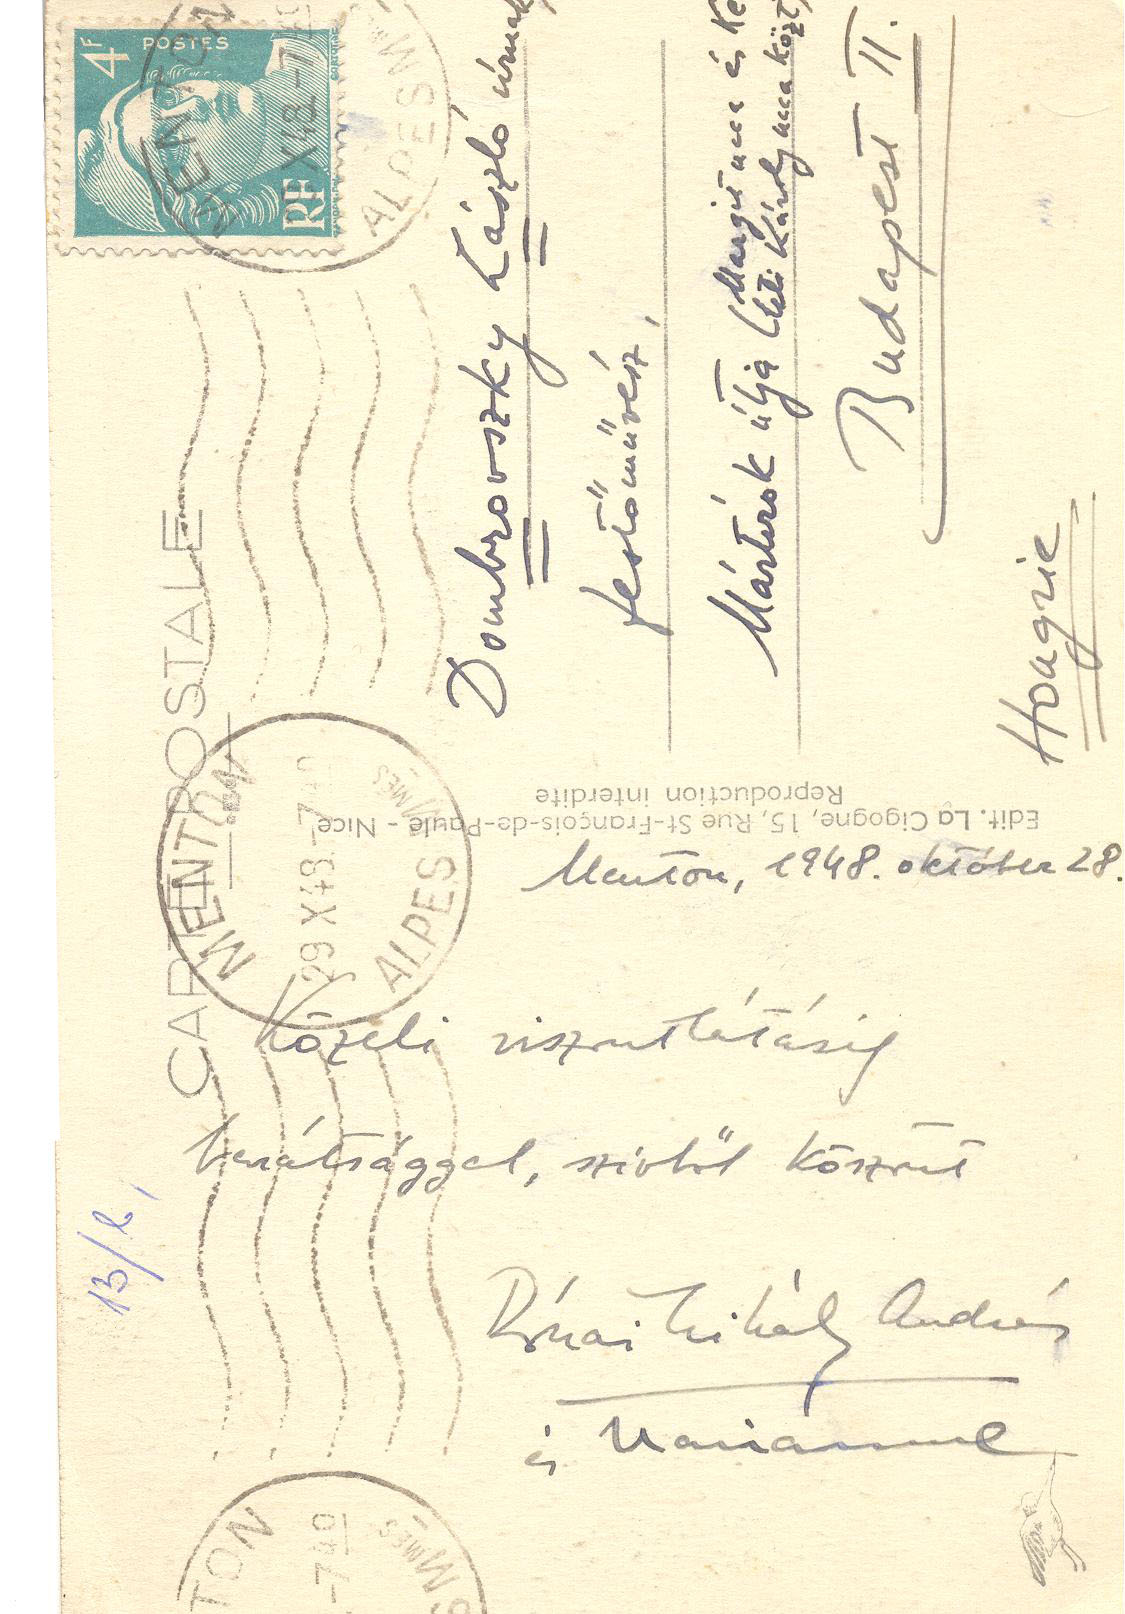 CARTE POSTALE
4F
POSTES
RF
MENTON
ALPES MMES
X 48 -7
MENTON
29 X 48. 740
ALPES MMES
TON
-740
MMES
Dombrovszky László úrnak
festőművész,
Mártírok útja (Margit ucca és Ke
leti Károly ucca közt)
Budapest II.
Hongrie
Edit. La Cigogne, 15, Rue St-François-de-Paule - Nice
Reproduction interdite
Menton, 1948. október 28.
Közeli viszontlátásig
barátsággal, szivből köszönt
Rónai Mihály András
és Marianne
13/b,